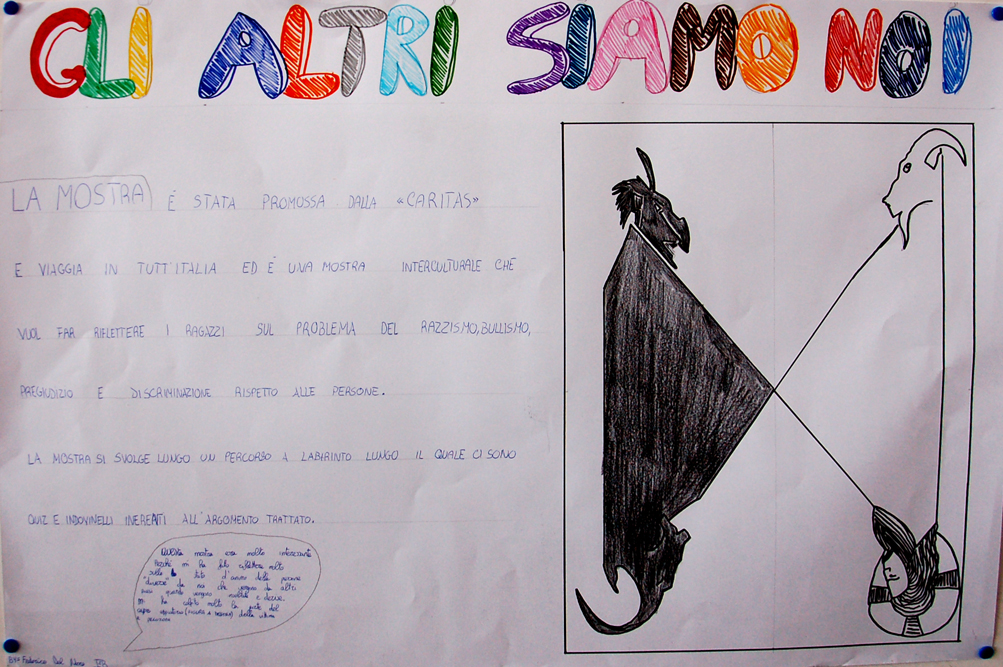 GLI ALTRI SIAMO NOI
LA MOSTRA È STATA PROMOSSA DALLA «CARITAS»
E VIAGGIA IN TUTT'ITALIA ED È UNA MOSTRA INTERCULTURALE CHE
VUOL FAR RIFLETTERE I RAGAZZI SUL PROBLEMA DEL RAZZISMO, BULLISMO,
PREGIUDIZIO E DISCRIMINAZIONE RISPETTO ALLE PERSONE.
LA MOSTRA SI SVOLGE LUNGO UN PERCORSO A LABIRINTO LUNGO IL QUALE CI SONO
QUIZ E INDOVINELLI INERENTI ALL'ARGOMENTO TRATTATO.
Questa mostra era molto interessante
perché mi ha fatto riflettere molto
sullo stato d'animo delle persone
"diverse" da noi che vengono da altri
paesi
mi ha colpito molto la parte del
capro espiatorio della
Federico Del